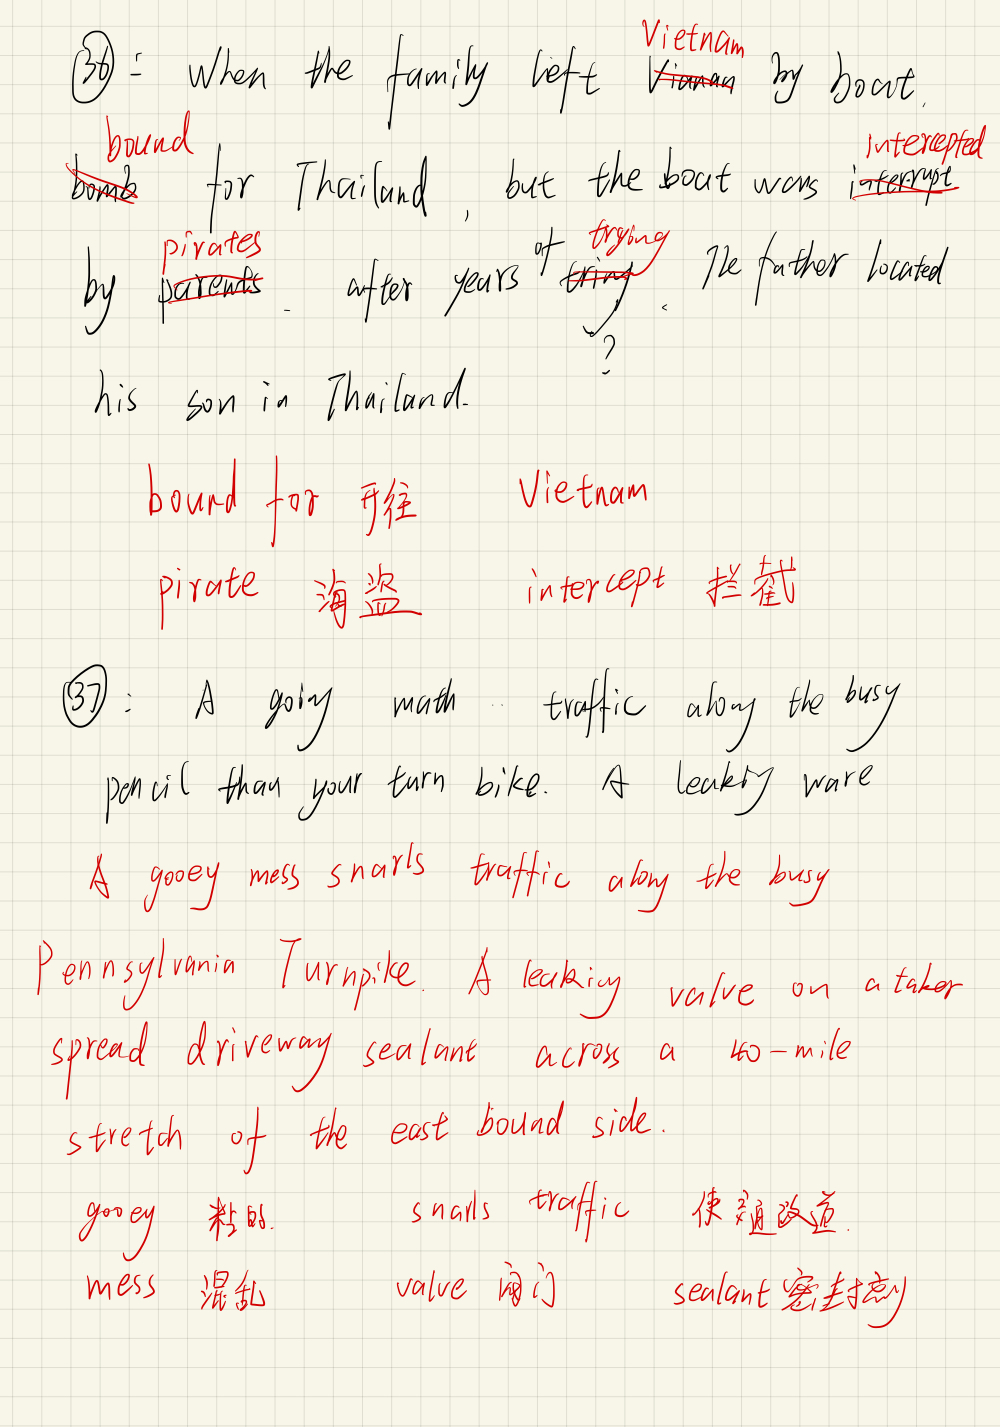 36: When the family left Vianan Vietnam by boat.
bomb bound for Thailand, but the boat was interrupt intercepted
by parents pirates. after years of tring trying. The father located
?
his son in Thailand.
bound for 开往 Vietnam
pirate 海盗 intercept 拦截
37: A going math traffic along the busy
pencil than your turn bike. A leaking ware
A gooey mess snarls traffic along the busy
Pennsylvania Turnpike. A leaking valve on a taker
spread driveway sealant across a 40-mile
stretch of the east bound side.
gooey 粘的. snarls traffic 使交通改道.
mess 混乱 valve 阀门 sealant 密封剂